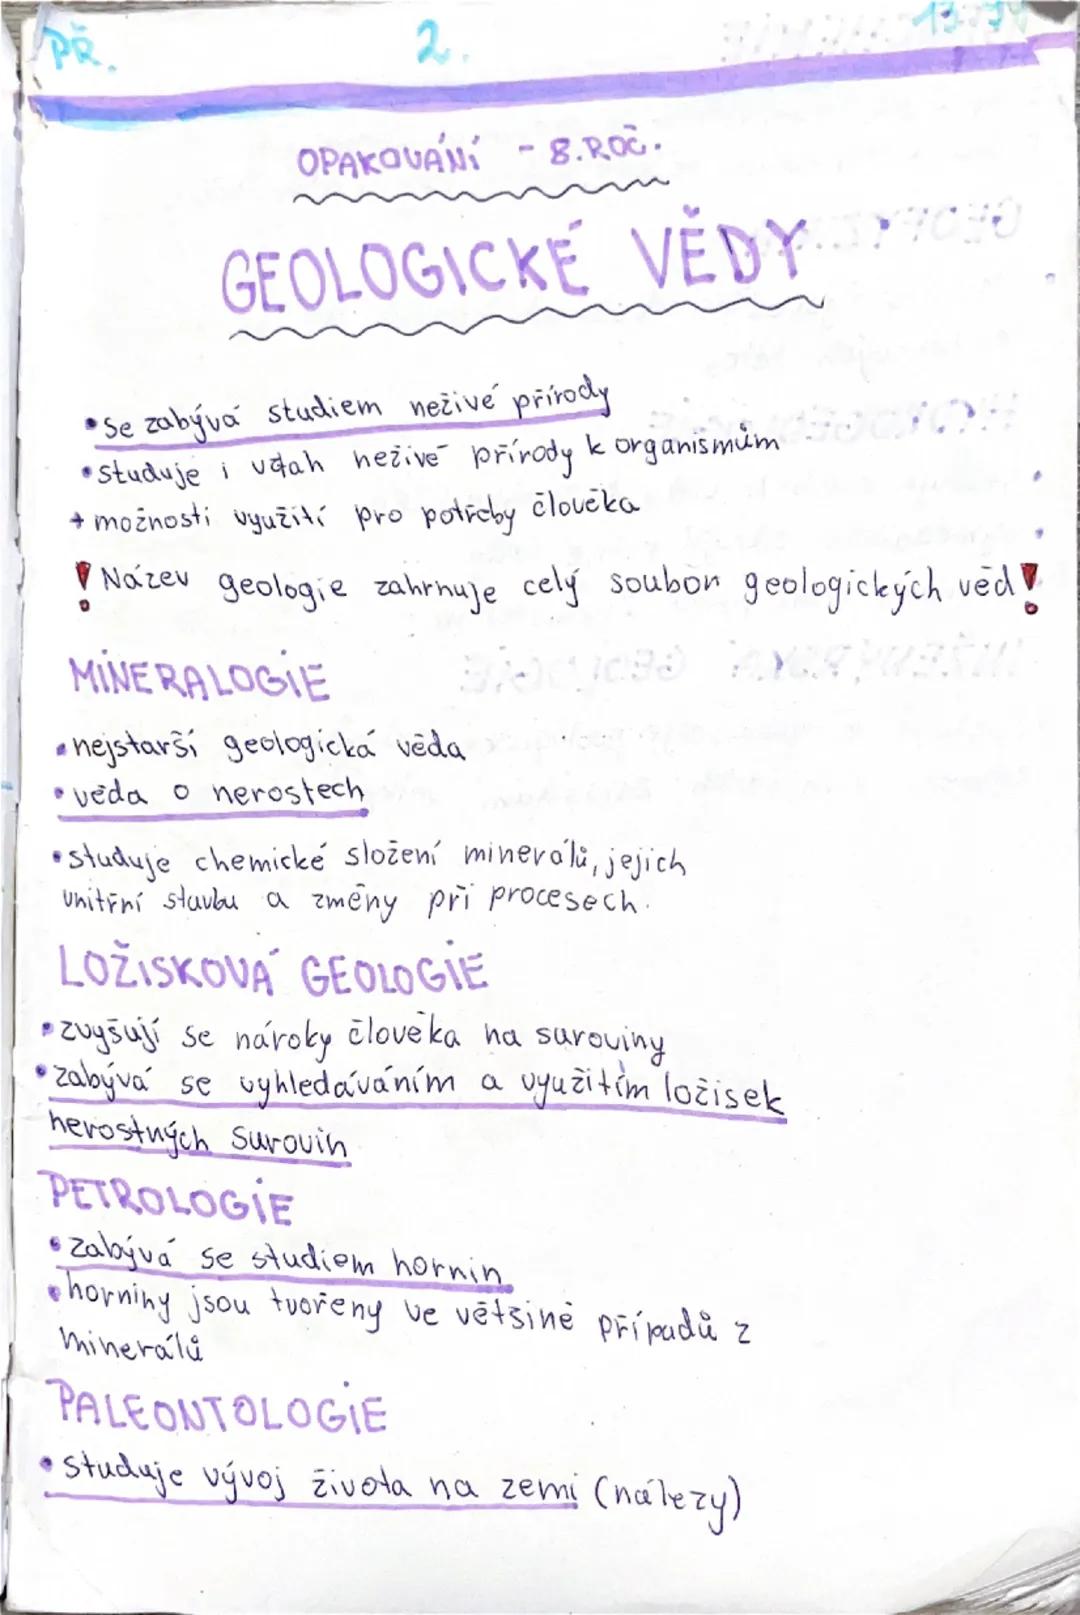 PŘ. 2.
OPAKOVÁNÍ - 8.ROČ.
GEOLOGICKÉ VĚDY
• se zabývá studiem neživé přírody
• studuje i vztah neživé přírody k organismům
+ možnosti využití pro potřeby člověka
! Název geologie zahrnuje celý soubor geologických věd!
MINERALOGIE
• nejstarší geologická věda
• věda o nerostech
• studuje chemické složení minerálů, jejich
vnitřní stavbu a změny při procesech.
LOŽISKOVÁ GEOLOGIE
• zvyšují se nároky člověka na suroviny
• zabývá se vyhledáváním a využitím ložisek
nerostných surovin
PETROLOGIE
• zabývá se studiem hornin
• horniny jsou tvořeny ve většině případů z
minerálů
PALEONTOLOGIE
• studuje vývoj života na zemi (nálezy)